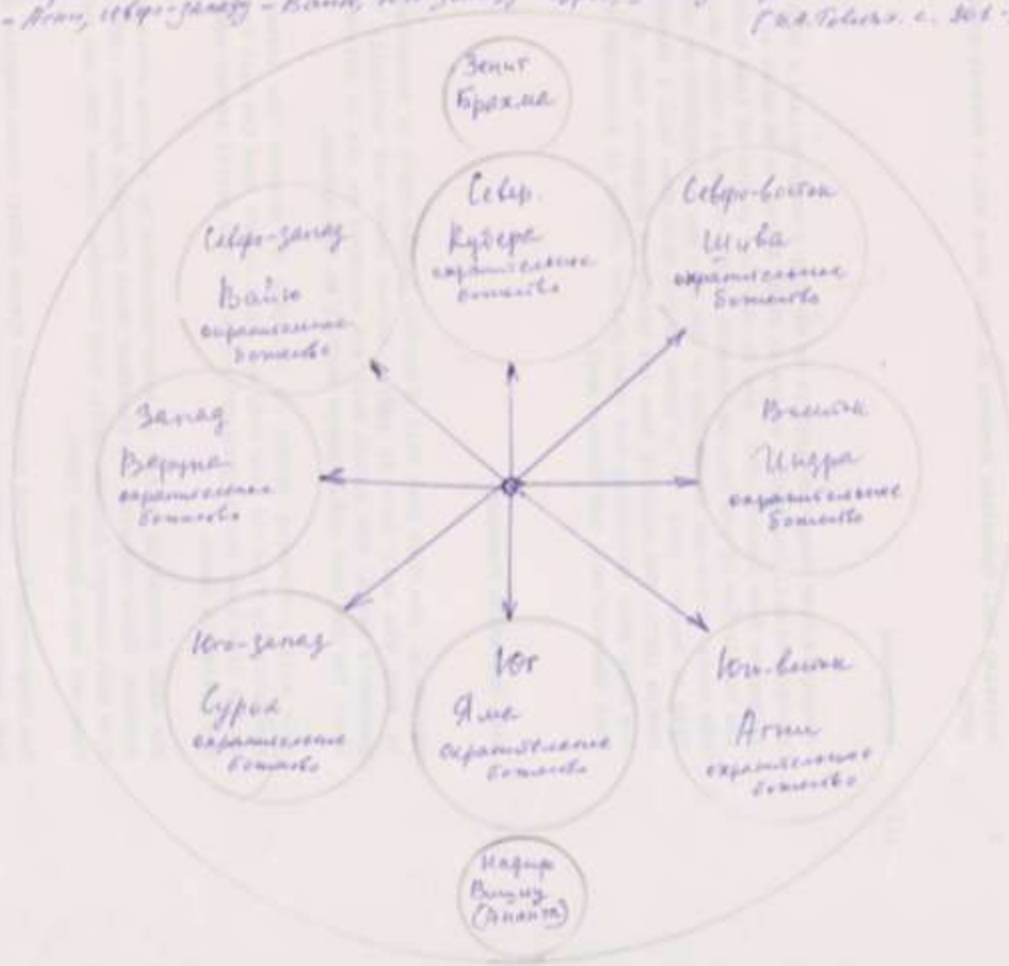 – Агни, северо-западу – Вайю,
Зенит
Брахма
Север.
Кубера
охранительное
божество
Северо-восток
Шива
охранительное
божество
Северо-запад
Вайю
охранительное
божество
Запад
Варуна
охранительное
божество
Восток
Индра
охранительное
божество
Юго-запад
Сурья
охранительное
божество
Юг
Яма
охранительное
божество
Юго-восток
Агни
охранительное
божество
Надир
Вишну
(Ананта)